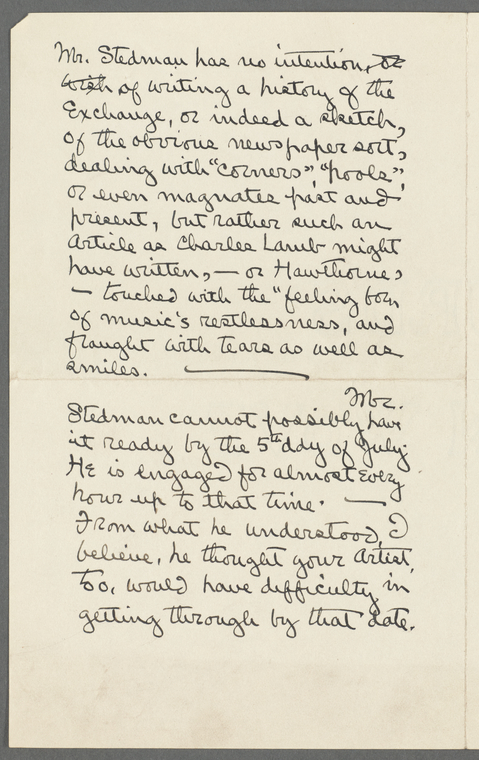 Mr. Stedman has no intention, or
wish of writing a history of the
Exchange, or indeed a sketch,
of the obvious newspaper sort,
dealing with "corners", "pools",
or even magnates past and
present, but rather such an
Article as Charles Lamb might
have written, — or Hawthorne,
— touched with the "feeling born
of music's restlessness, and
fraught with tears as well as
smiles. —
Mr.
Stedman cannot possibly have
it ready by the 5th day of July.
He is engaged for almost every
hour up to that time. —
From what he understood, I
believe, he thought your Artist,
too, would have difficulty in
getting through by that date.